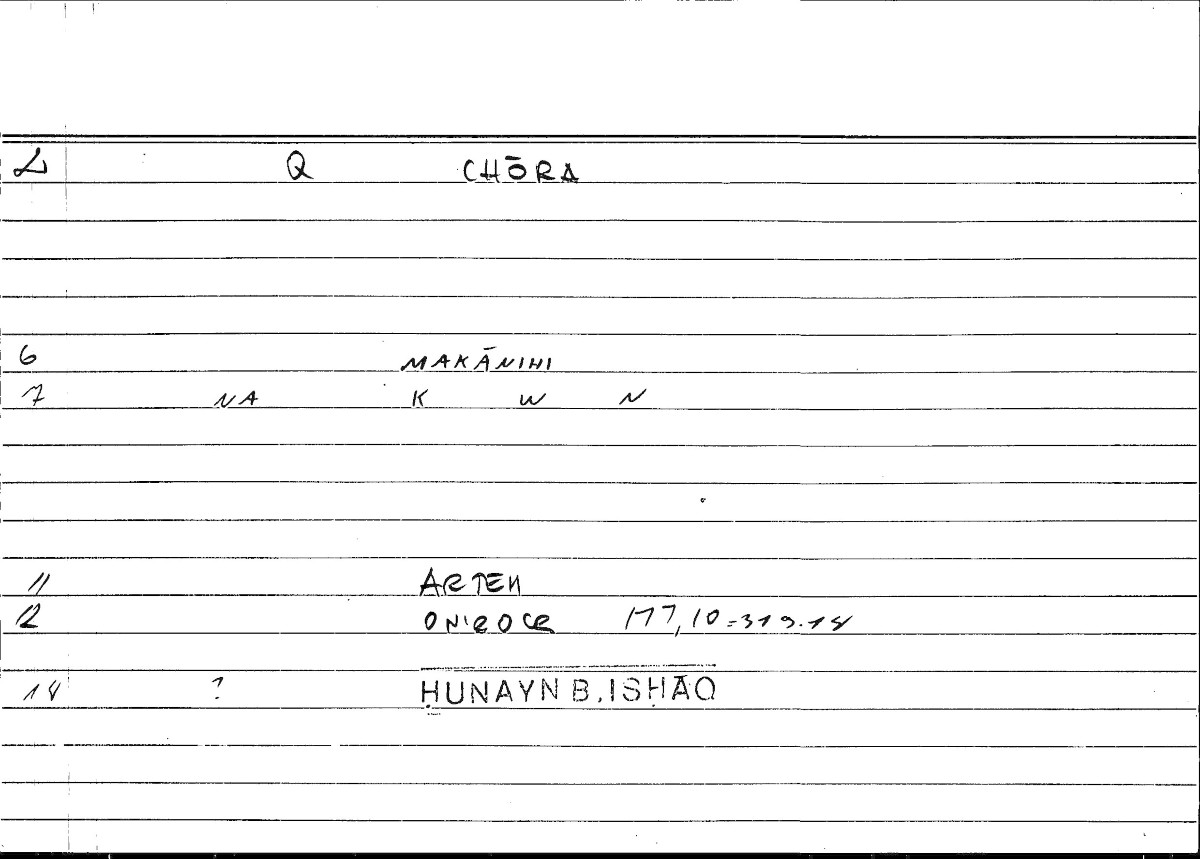 L Q CHŌRA
6 MAKĀNIHI
7 NA K W N
11 ARTEM
12 ONIROCR 177,10=319.18
14 ? ḤUNAYN B. ISḤĀQ